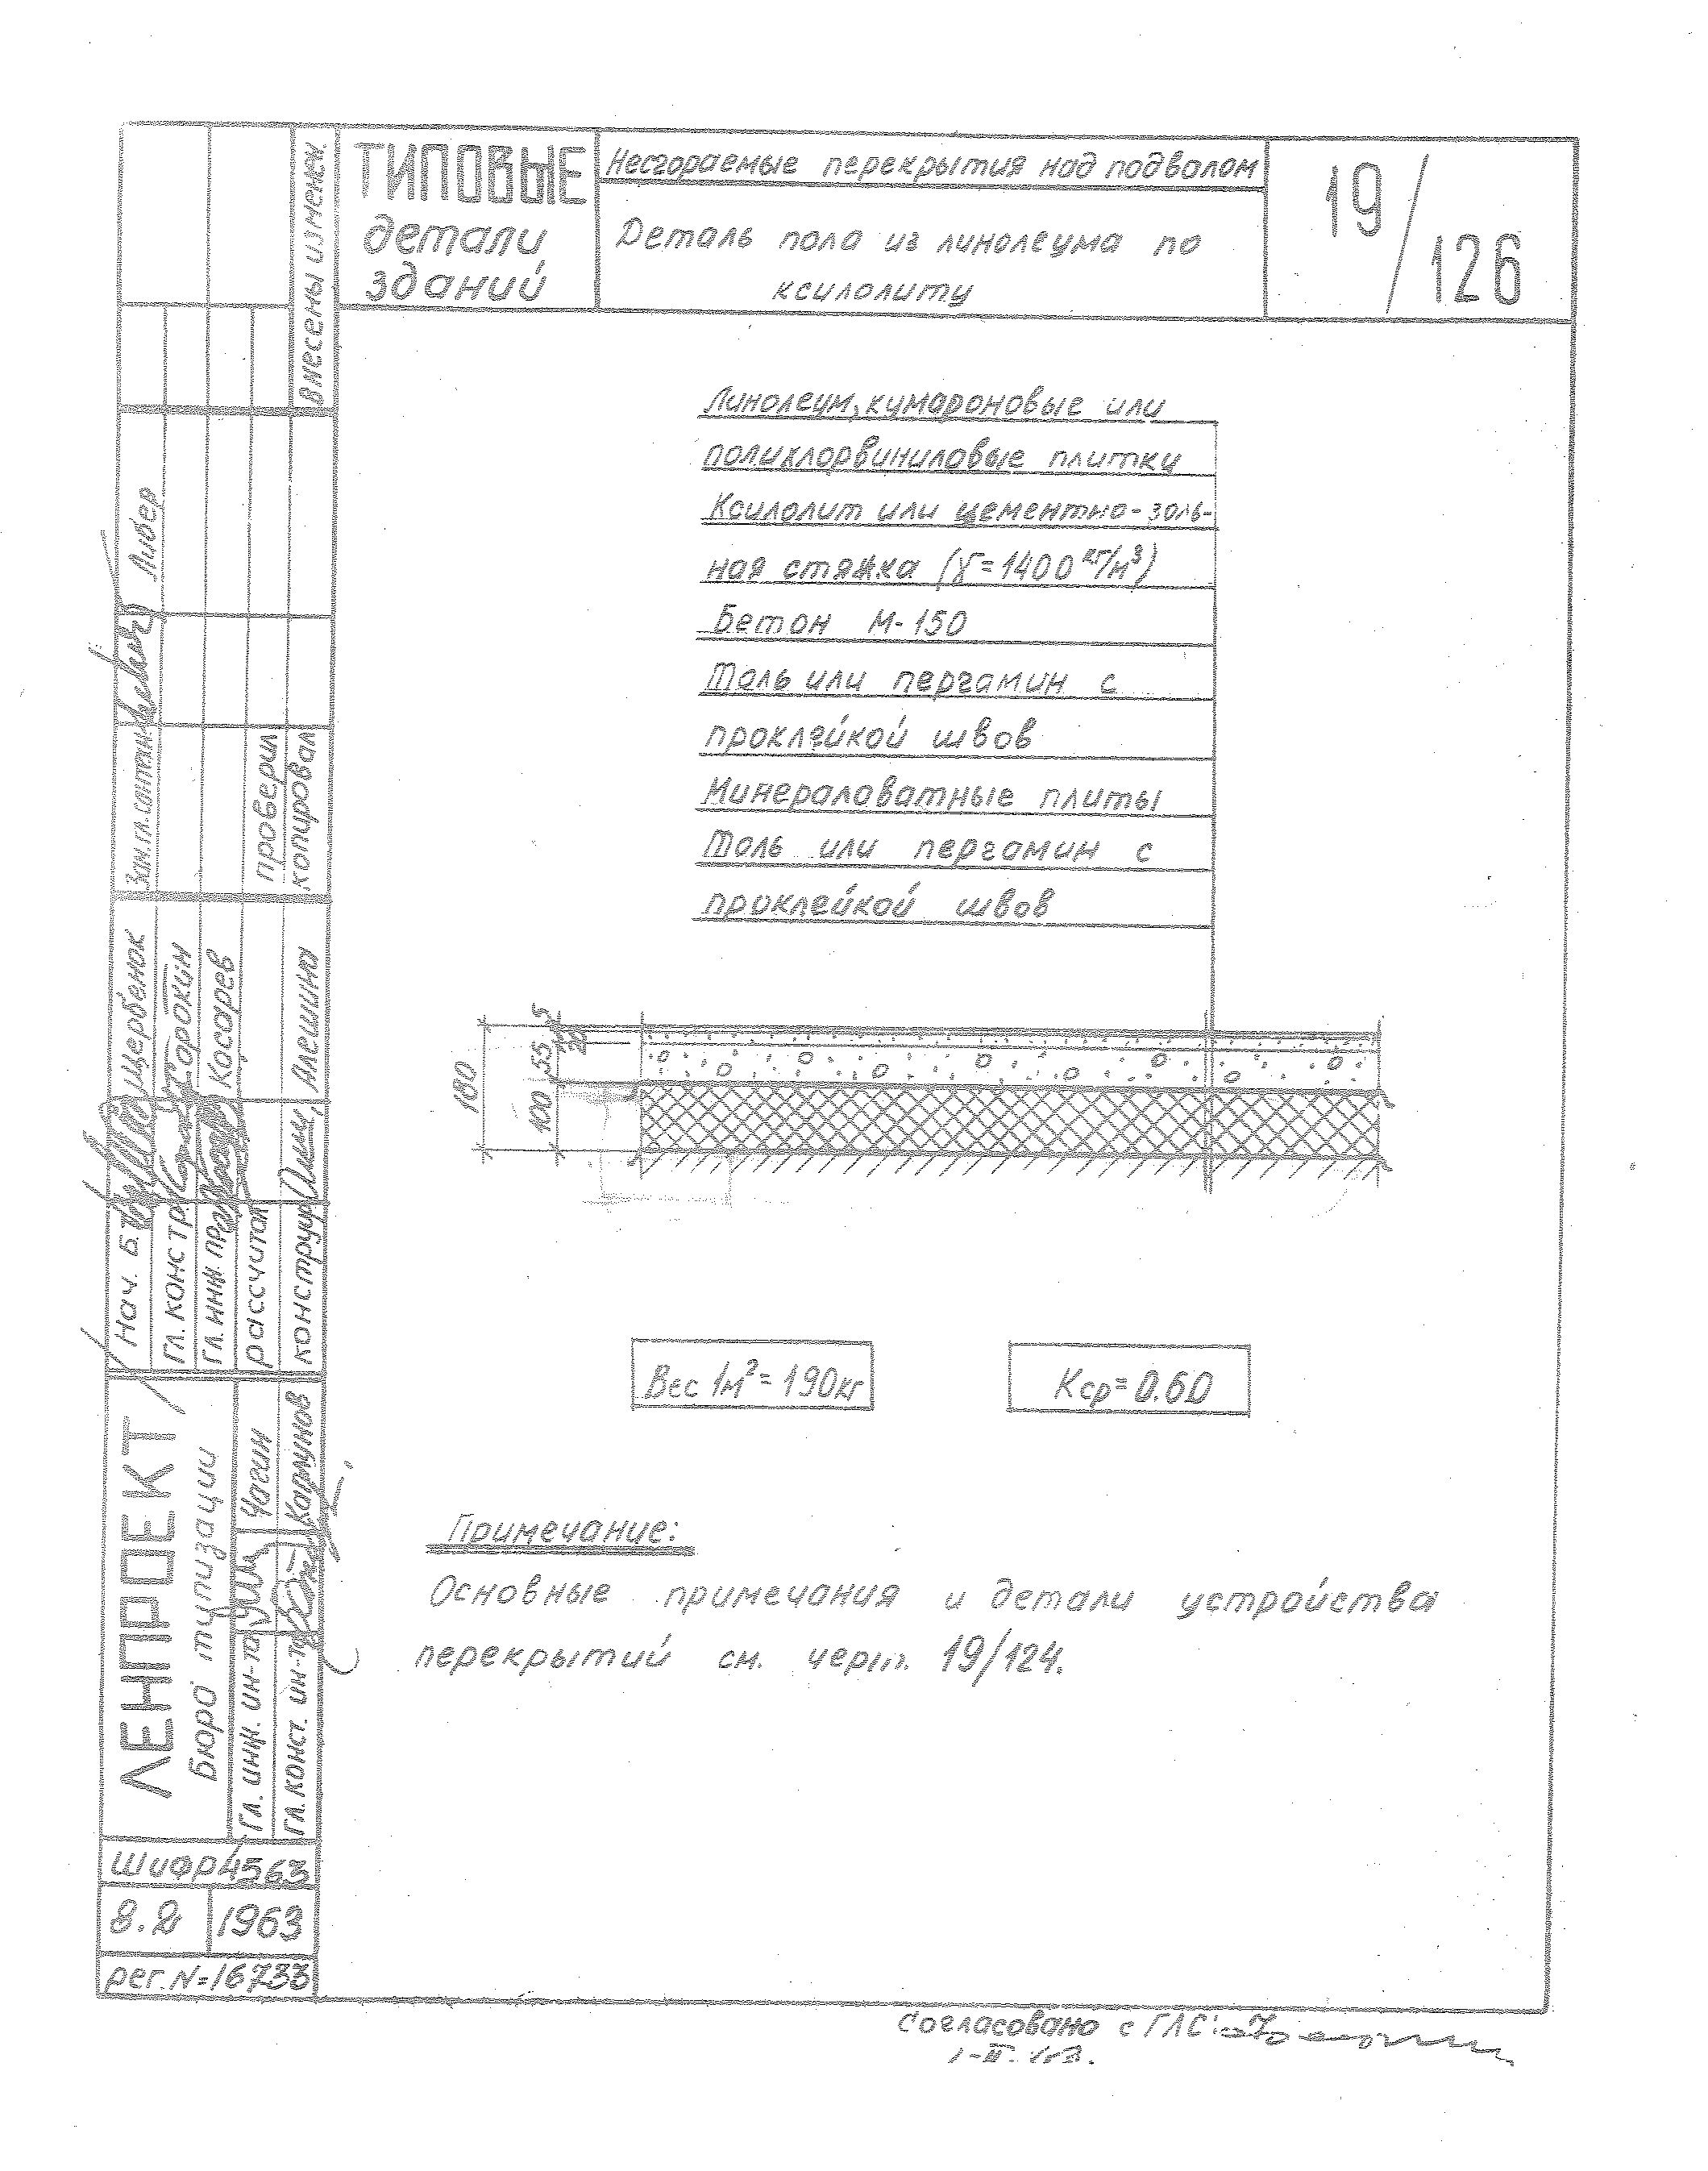 ТИПОВЫЕ
детали
зданий
Несгораемые перекрытия над подвалом
Деталь пола из линолеума по
ксилолиту
19/126
Линолеум, кумароновые или
полихлорвиниловые плитки
Ксилолит или цементно-золь-
ная стяжка (γ=1400 кг/м³)
Бетон М-150
Толь или пергамин с
проклейкой швов
Минераловатные плиты
Толь или пергамин с
проклейкой швов
180
100
55
20
5
Вес 1м²=190кг
Kср=0.60
Примечание:
Основные примечания и детали устройства
перекрытий см. черт. 19/124.
внесены изменен.
Либер
Зам. гл.
проверил
копировал
Щербенок
Сорокин
Косарев
Алешина
Нач. Б.
Гл. констр
Гл. инж. пр
рассчитал
конструир
ЛЕНПРОЕКТ
Бюро типизации
Гл. инж. ин-та
Чагин
Гл. конст. ин-та
Карпунов
Шифр 4563
8.2
1963
рег. N=16733
Согласовано с ГЛС